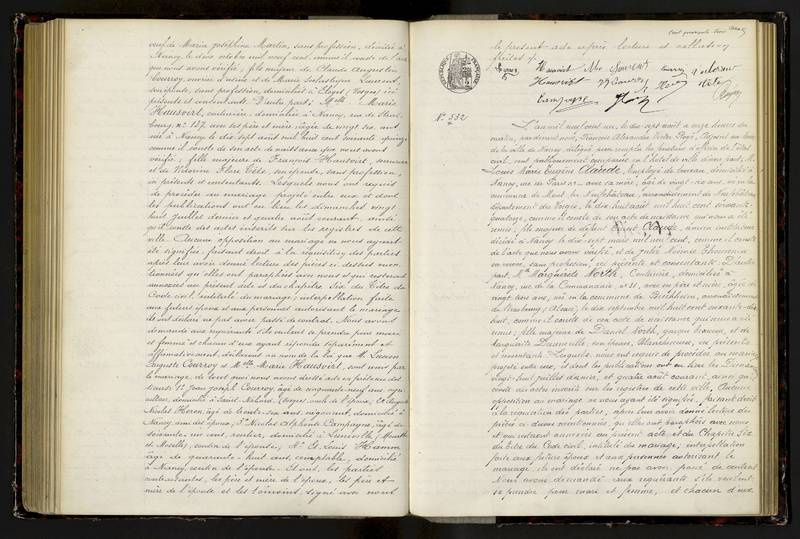 veuf de Marie Joséphine Martin, sans profession, décédée à
Nancy, le dix octobre mil neuf cent, comme il conste de l'acte
que nous avons vérifié; fils majeur de Claude Augustin
Courroy, ouvrier d'usine et de Marie Scholastique Laurent,
son épouse, sans profession, domiciliés à Eloyes (Vosges) ici
présents et consentants. D'autre part: Mlle Marie
Hausvirt, couturière, domiciliée à Nancy, rue de Stras-
bourg, n° 137 avec ses père et mère, âgée de vingt six ans
née à Nancy, le dix sept août mil huit cent soixante quinze
comme il conste de son acte de naissance que nous avons
vérifié; fille majeure de François Hausvirt,
et de Victorine Flore Tête, son épouse, sans profession,
ici présents et consentants. Lesquels nous ont requis
de procéder au mariage projeté entre eux et dont
les publications ont eu lieu les dimanches vingt
huit juillet dernier et quatre août courant, ainsi
qu'il conste des actes inscrits sur les registres de cette
ville. Aucune opposition au mariage ne nous ayant
été signifiée, faisant droit à la réquisition des parties
après leur avoir donné lecture des pièces ci-dessus men-
tionnées qu'elles ont paraphées avec nous et qui resteront
annexées au présent acte et du chapitre Six du Titre du
Code civil, intitulé du mariage; interpellation faite
aux futurs époux et aux personnes autorisant le mariage,
ils ont déclaré ne pas avoir passé de contrat. Nous avons
demandé aux requérants s'ils veulent se prendre pour mari
et femme et chacun d'eux ayant répondu séparément et
affirmativement, déclarons au nom de la loi que M. Lucien
Auguste Courroy et Mlle Marie Hausvirt, sont unis par
le mariage, de tout quoi nous avons dressé acte en présence des
sieurs 1° Jean Joseph Courroy, âgé de cinquante-neuf ans,
domicilié à Saint-Nabord (Vosges) oncle de l'époux, 2°
Nicolas Héren, âgé de trente-six ans, négociant, domicilié à
Nancy, ami des époux, 3° Nicolas Alphonse Campagne, âgé de
soixante-un ans, rentier, domicilié à Lunéville (Meurthe
et Moselle), cousin de l'épouse, 4° Louis Hamen,
âgé de quarante-huit ans, comptable, domicilié
à Nancy, cousin de l'épouse. Et ont, les parties
contractantes, les père et mère de l'époux, les père et
mère de l'épouse et les témoins, signé avec nous
le présent acte après lecture et
Hausvirt
Campagne
N° 532
L'an mil neuf cent un, le dix sept août à onze heures du
matin, pardevant nous, François Alexandre Victor Pagé, Adjoint au Maire
de la ville de Nancy, délégué pour remplir les fonctions d'officier de l'état
civil, ont publiquement comparu en l'hôtel de ville d'une part, M.
Louis Marie Eugène Claude, Employé de bureau, domicilié à
Nancy, rue de avec sa mère; âgé de vingt-sept ans, né en la
commune de Mont lès Neufchâteau, arrondissement de Neufchâteau
département des Vosges, le dix huit août mil huit cent soixante-
quatorze, comme il conste de son acte de naissance qui nous a été
remis; fils majeur de défunt Claude, ancien instituteur
décédé à Nancy, le dix-sept mars mil neuf cent, comme il conste
de l'acte que nous avons vérifié, et de
sa veuve, sans profession, ici présente et consentante. D'autre
part, Mlle Marguerite North, Couturière, domiciliée à
Nancy, rue de la Commanderie, n° 21, avec ses père et mère, âgée de
vingt trois ans, née en la commune de Bischheim, arrondissement
de Strasbourg (Alsace), le dix septembre mil huit cent soixante-dix
huit, comme il conste de son acte de naissance qui nous a été
remis; fille majeure de Daniel North, garçon brasseur, et de
Marguerite son épouse, Blanchisseuse, ici présents
et consentants. Lesquels nous ont requis de procéder au mariage
projeté entre eux, et dont les publications ont eu lieu les Dimanches
vingt-huit juillet dernier, et quatre août courant, ainsi qu'il
conste des actes inscrits sur les registres de cette ville. Aucune
opposition au mariage ne nous ayant été signifiée, faisant droit
à la réquisition des parties, après leur avoir donné lecture des
pièces ci-dessus mentionnées, qu'elles ont paraphées avec nous
et qui resteront annexées au présent acte et du Chapitre Six
du titre du Code civil, intitulé du mariage, interpellation
faite aux futurs époux et aux personnes autorisant le
mariage, ils ont déclaré ne pas avoir passé de contrat
Nous avons demandé aux requérants s'ils veulent
se prendre pour mari et femme, et chacun d'eux